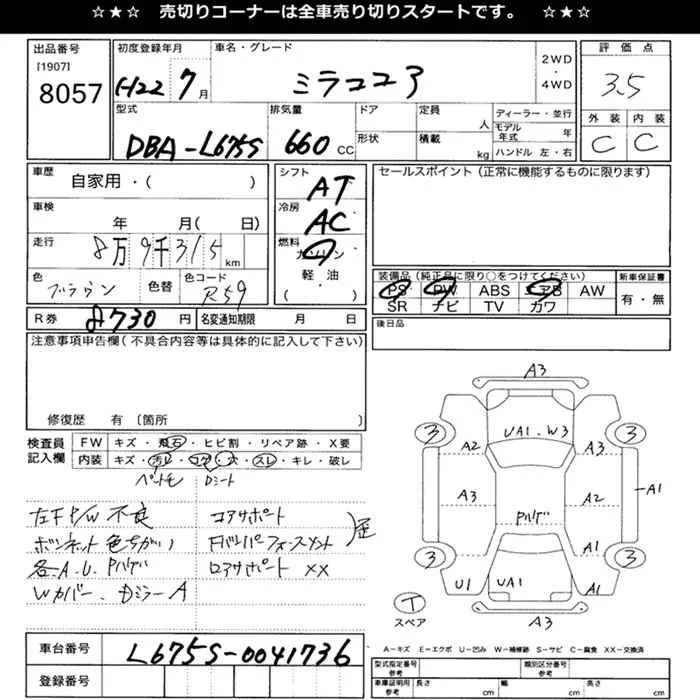 ☆★☆ 売切りコーナーは全車売り切りスタートです。 ☆★☆
出品番号
[1907]
8057
初度登録年月
H22 7月
車名・グレード
ミラココア
2WD
・
4WD
評価点
3.5
外装 内装
C C
型式
DBA-L675S
排気量
660 CC
ドア
形状
定員
人
積載
kg
ディーラー・並行
モデル年式 年
ハンドル 左・右
車歴
自家用・( )
車検
年 月( 日)
走行
8万9千315 km
色
ブラウン
色替
色コード
R59
シフト
AT
冷房
AC
燃料
ガソリン
軽・油
( )
セールスポイント(正常に機能するものに限ります)
装備品(純正品に限り○をつけてください)
PS PW ABS エアB AW
SR ナビ TV カワ
新車保証書
有・無
R券 8730 円
名変通知期限 月 日
後日品
注意事項申告欄(不具合内容等は具体的に記入して下さい)
修復歴 有〔箇所 〕
検査員
記入欄
FW キズ・飛石・ヒビ割・リペア跡・X要
内装 キズ・汚レ・コゲ・穴・スレ・キレ・破レ
Dシート
左F P/W 不良
ボンネット色ちがい
各A.U.Pハゲ
Wカバー、DミラーA
コアサポート
FバンパーフォースメンT
ロアサポート XX
歪
A3
UA1.W3
3 3
A2 A3
A3 A2
A1
Pハゲ
A1
3 3
U1 UA1 A1
T
スペア
A3
A-キズ E-エクボ U-凹み W-補修跡 S-サビ C-腐食 XX-交換済
車台番号
L675S-0041736
登録番号
型式指定番号
参考
類別区分番号
参考
車庫証明用
参考
長さ cm
幅 cm
高さ cm